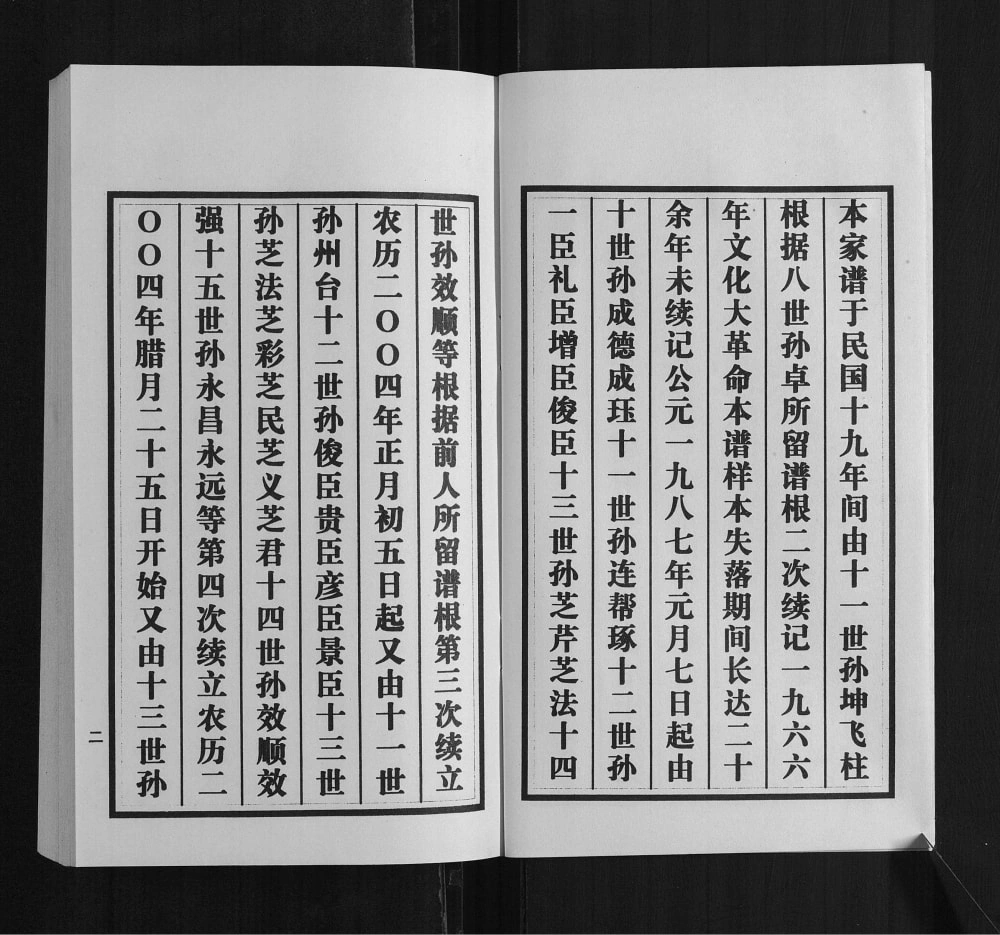 本家谱于民国十九年间由十一世孙坤飞柱
根据八世孙卓所留谱根二次续记一九六六
年文化大革命本谱样本失落期间长达二十
余年未续记公元一九八七年元月七日起由
十世孙成德成珏十一世孙连帮琢十二世孙
一臣礼臣增臣俊臣十三世孙芝芹芝法十四
世孙效顺等根据前人所留谱根第三次续立
农历二〇〇四年正月初五日起又由十一世
孙州台十二世孙俊臣贵臣彦臣景臣十三世
孙芝法芝彩芝民芝义芝君十四世孙效顺效
强十五世孙永昌永远等第四次续立农历二
〇〇四年腊月二十五日开始又由十三世孙
二